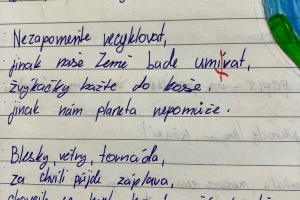 Nezapomeňte recyklovat,
jinak naše Země bude umírat,
žvýkačky hažte do koše,
jinak nám planeta nepomůže.
Blesky, vetry, tornáda,
za chvíli přijde záplava,